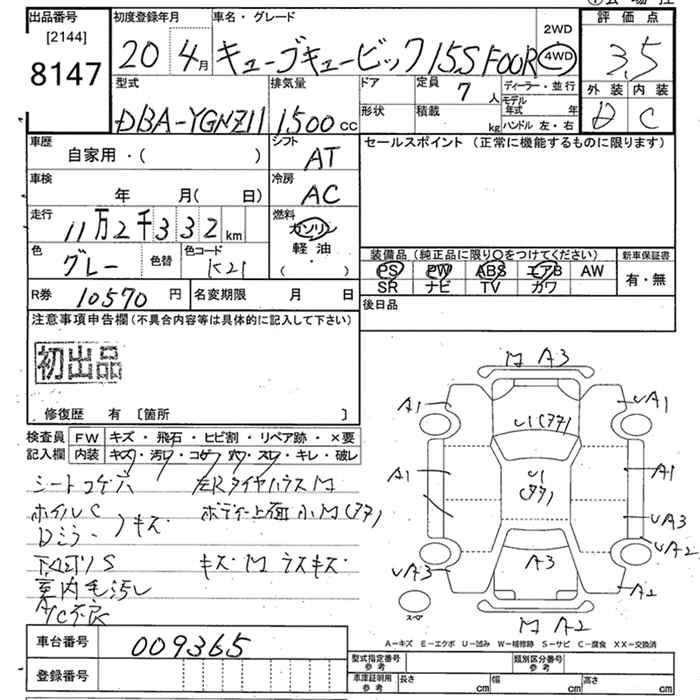 出品番号 初度登録年月 車名・グレード 2WD 評価点
[2144] 20 4月 キューブキュービック 15S FOOR 4WD 3.5
8147
型式 排気量 ドア 定員 7人 ディーラー・並行 外装 内装
DBA-YGNZ11 1500cc 形状 積載 kg モデル年式 年 D C
ハンドル 左・右
車歴 シフト セールスポイント (正常に機能するものに限ります)
自家用・( ) AT
車検 冷房
年 月( 日) AC
走行 燃料
11万2千332km ガソリン
軽油
・( )
色 グレー 色替 色コード K21
装備品 (純正品に限り○をつけてください) 新車保証書
PS PW ABS エアB AW 有・無
SR ナビ TV カワ
R券 10570円 名変期限 月 日
後日品
注意事項申告欄(不具合内容等は具体的に記入して下さい)
初出品
修復歴 有 [箇所 ]
M A3
A1 UA1
U1(アア)
A1 U1 A1
(アア)
UA3
UA2
UA3 A3 A2
M A2
スペア
検査員 FW キズ・飛石・ヒビ割・リペア跡・×要
記入欄 内装 キズ・汚レ・コゲ・穴・スレ・キレ・破レ
シートコゲ穴 左Rタイヤハウス M
ホイルC ボディー上面 小M(アア)
Dミラーキズ
下回リS キズ M ラスキズ
室内毛汚レ
A/C不良
A-キズ E-エクボ U-凹み W-補修跡 S-サビ C-腐食 XX-交換済
車台番号 009365
登録番号
型式指定番号 参考 類別区分番号 参考
車庫証明用 参考 長さ cm 幅 cm 高さ cm